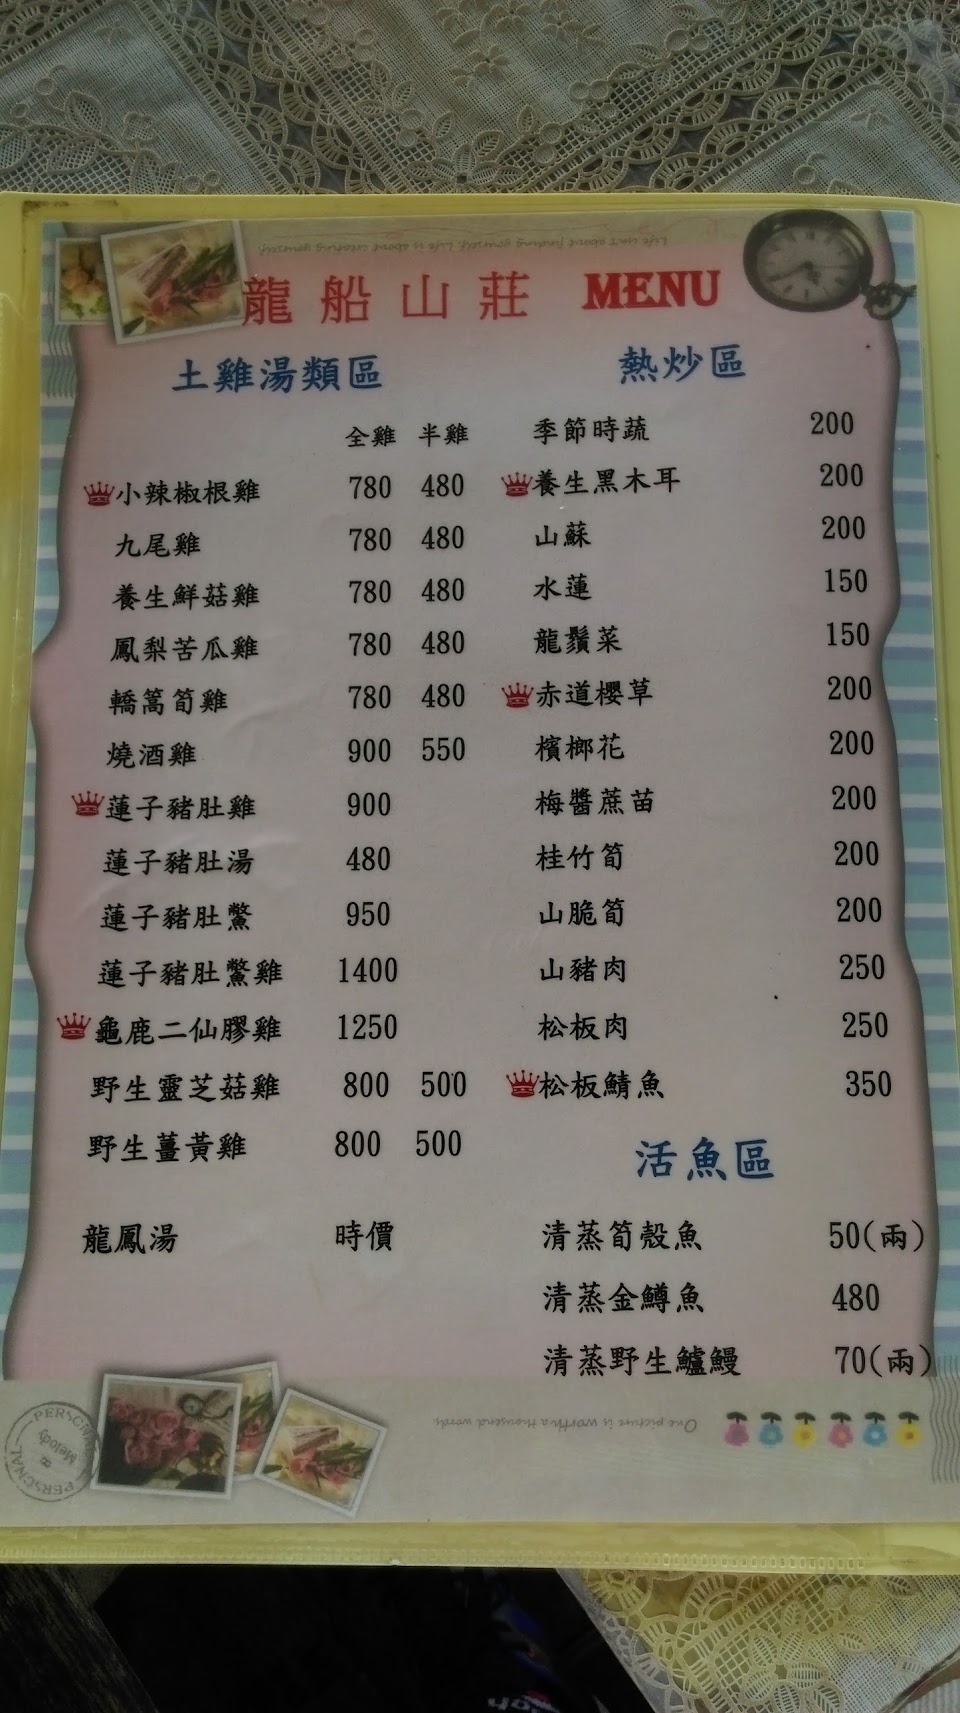 Life isn't about finding yourself. Life is about creating yourself.
龍船山莊 MENU
土雞湯類區
全雞 半雞
小辣椒根雞 780 480
九尾雞 780 480
養生鮮菇雞 780 480
鳳梨苦瓜雞 780 480
轎篙筍雞 780 480
燒酒雞 900 550
蓮子豬肚雞 900
蓮子豬肚湯 480
蓮子豬肚鱉 950
蓮子豬肚鱉雞 1400
龜鹿二仙膠雞 1250
野生靈芝菇雞 800 500
野生薑黃雞 800 500
龍鳳湯 時價
熱炒區
季節時蔬 200
養生黑木耳 200
山蘇 200
水蓮 150
龍鬚菜 150
赤道櫻草 200
檳榔花 200
梅醬蔗苗 200
桂竹筍 200
山脆筍 200
山豬肉 250
松板肉 250
松板鯖魚 350
活魚區
清蒸筍殼魚 50(兩)
清蒸金鱒魚 480
清蒸野生鱸鰻 70(兩)
One picture is worth a thousand words
Melody